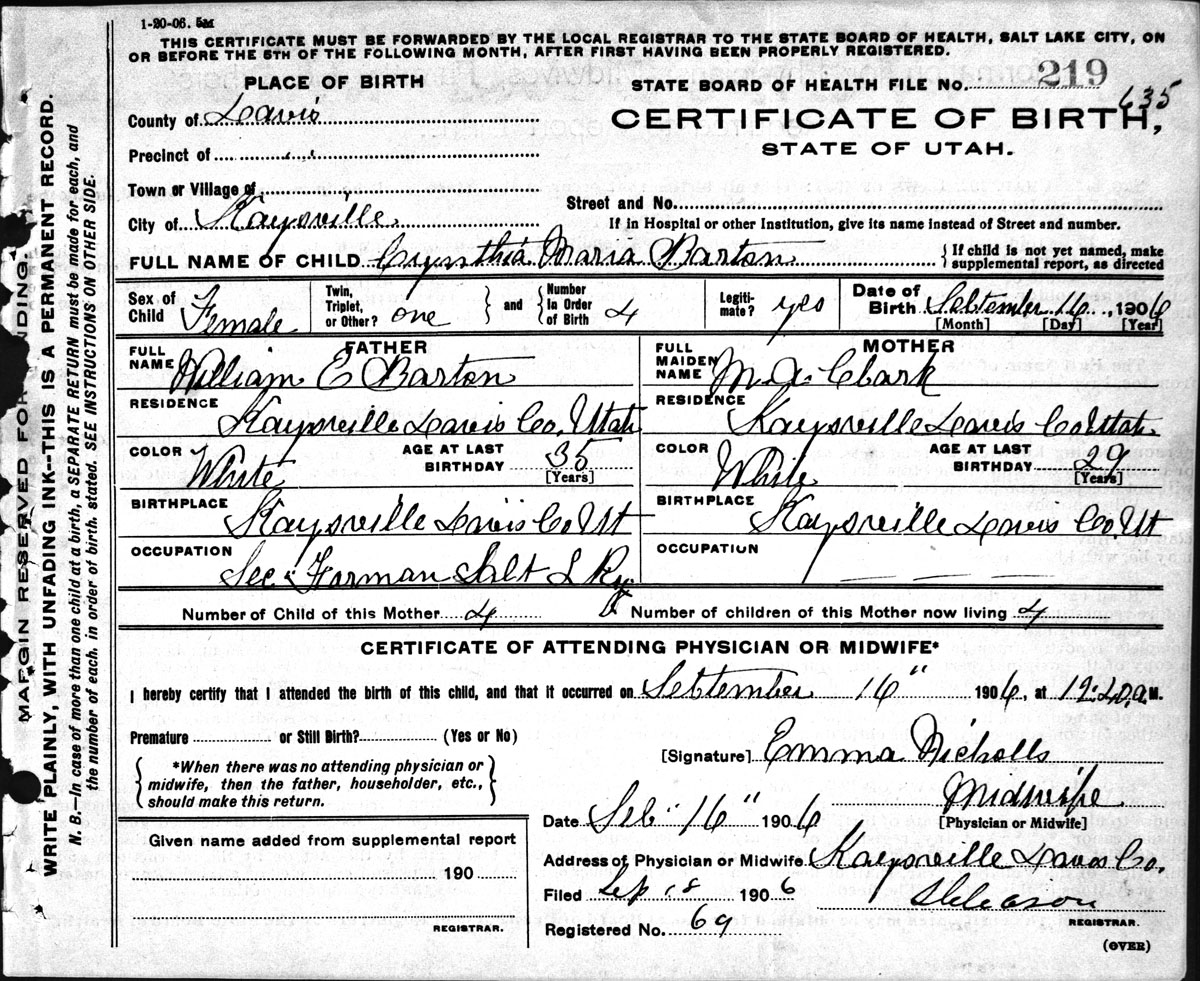 1-20-06. 5M
THIS CERTIFICATE MUST BE FORWARDED BY THE LOCAL REGISTRAR TO THE STATE BOARD OF HEALTH, SALT LAKE CITY, ON
OR BEFORE THE 5TH OF THE FOLLOWING MONTH, AFTER FIRST HAVING BEEN PROPERLY REGISTERED.
PLACE OF BIRTH
County of Davis
Precinct of " "
Town or Village of
City of Kaysville
STATE BOARD OF HEALTH FILE NO. 219
635
CERTIFICATE OF BIRTH,
STATE OF UTAH.
Street and No.
If in Hospital or other Institution, give its name instead of Street and number.
FULL NAME OF CHILD Crynthia Maria Barton { If child is not yet named, make
supplemental report, as directed
Sex of Child Female
Twin, Triplet, or Other? one } and { Number In Order of Birth 4
Legiti- mate? yes
Date of Birth September 16, 1906
[Month] [Day] [Year]
FATHER
FULL NAME William E Barton
RESIDENCE Kaysville Davis Co. Utah
COLOR White AGE AT LAST BIRTHDAY 35
[Years]
BIRTHPLACE Kaysville Davis Co Ut
OCCUPATION Sec. Forman Salt L Ry
MOTHER
FULL MAIDEN NAME M. A. Clark
RESIDENCE Kaysville Davis Co Utah
COLOR White AGE AT LAST BIRTHDAY 29
[Years]
BIRTHPLACE Kaysville Davis Co. Ut
OCCUPATION — — — —
Number of Child of this Mother 4 Number of children of this Mother now living 4
CERTIFICATE OF ATTENDING PHYSICIAN OR MIDWIFE*
I hereby certify that I attended the birth of this child, and that it occurred on September 16" 1906, at 12:20 a M.
Premature or Still Birth? (Yes or No)
{ *When there was no attending physician or
midwife, then the father, householder, etc.,
should make this return. }
[Signature] Emma Nicholls
Midwife
[Physician or Midwife]
Date Seb" 16" 1906
Address of Physician or Midwife Kaysville Davis Co.
Filed Sep 18 1906
Registered No. 69
S Gleason
REGISTRAR.
(OVER)
Given name added from supplemental report
190
REGISTRAR.
MARGIN RESERVED FOR BINDING.
WRITE PLAINLY, WITH UNFADING INK—THIS IS A PERMANENT RECORD.
N. B.—In case of more than one child at a birth, a SEPARATE RETURN must be made for each, and
the number of each, in order of birth, stated. SEE INSTRUCTIONS ON OTHER SIDE.